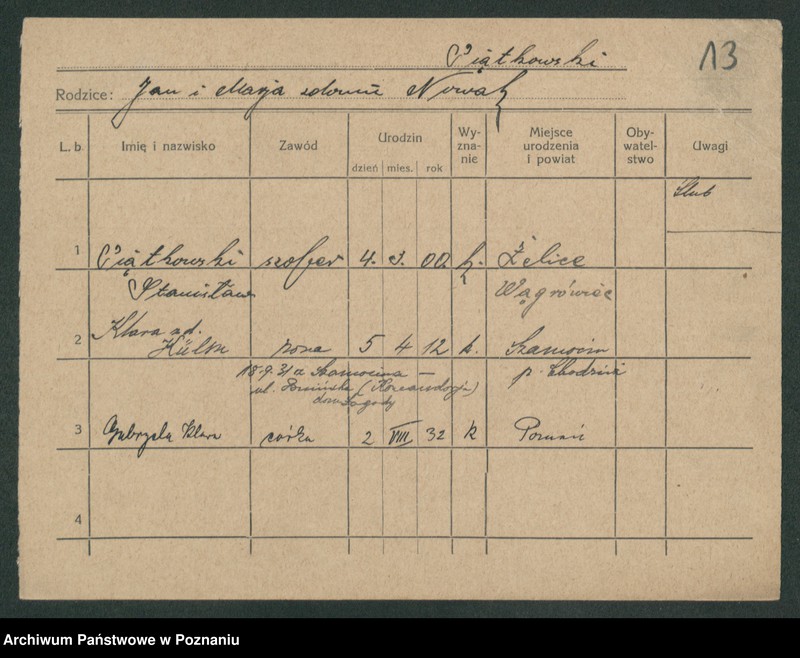 Piątkowski
13
Rodzice: Jan i Marja z domu Nowak
L. b. Imię i nazwisko Zawód Urodzin dzień mies. rok Wy-zna-nie Miejsce urodzenia i powiat Oby-watel-stwo Uwagi
Ślub
1 Piątkowski szofer 4. 00. k. Żelice
Stanisław Wągrówiec
Klara zd.
2 żona 5 4 12 k. Szamocin
18.9.31 z Szamocina — p. Chodzież
ul.
3 Gabryela Klara córka 2 VIII 32 k Poznań
4
Archiwum Państwowe w Poznaniu